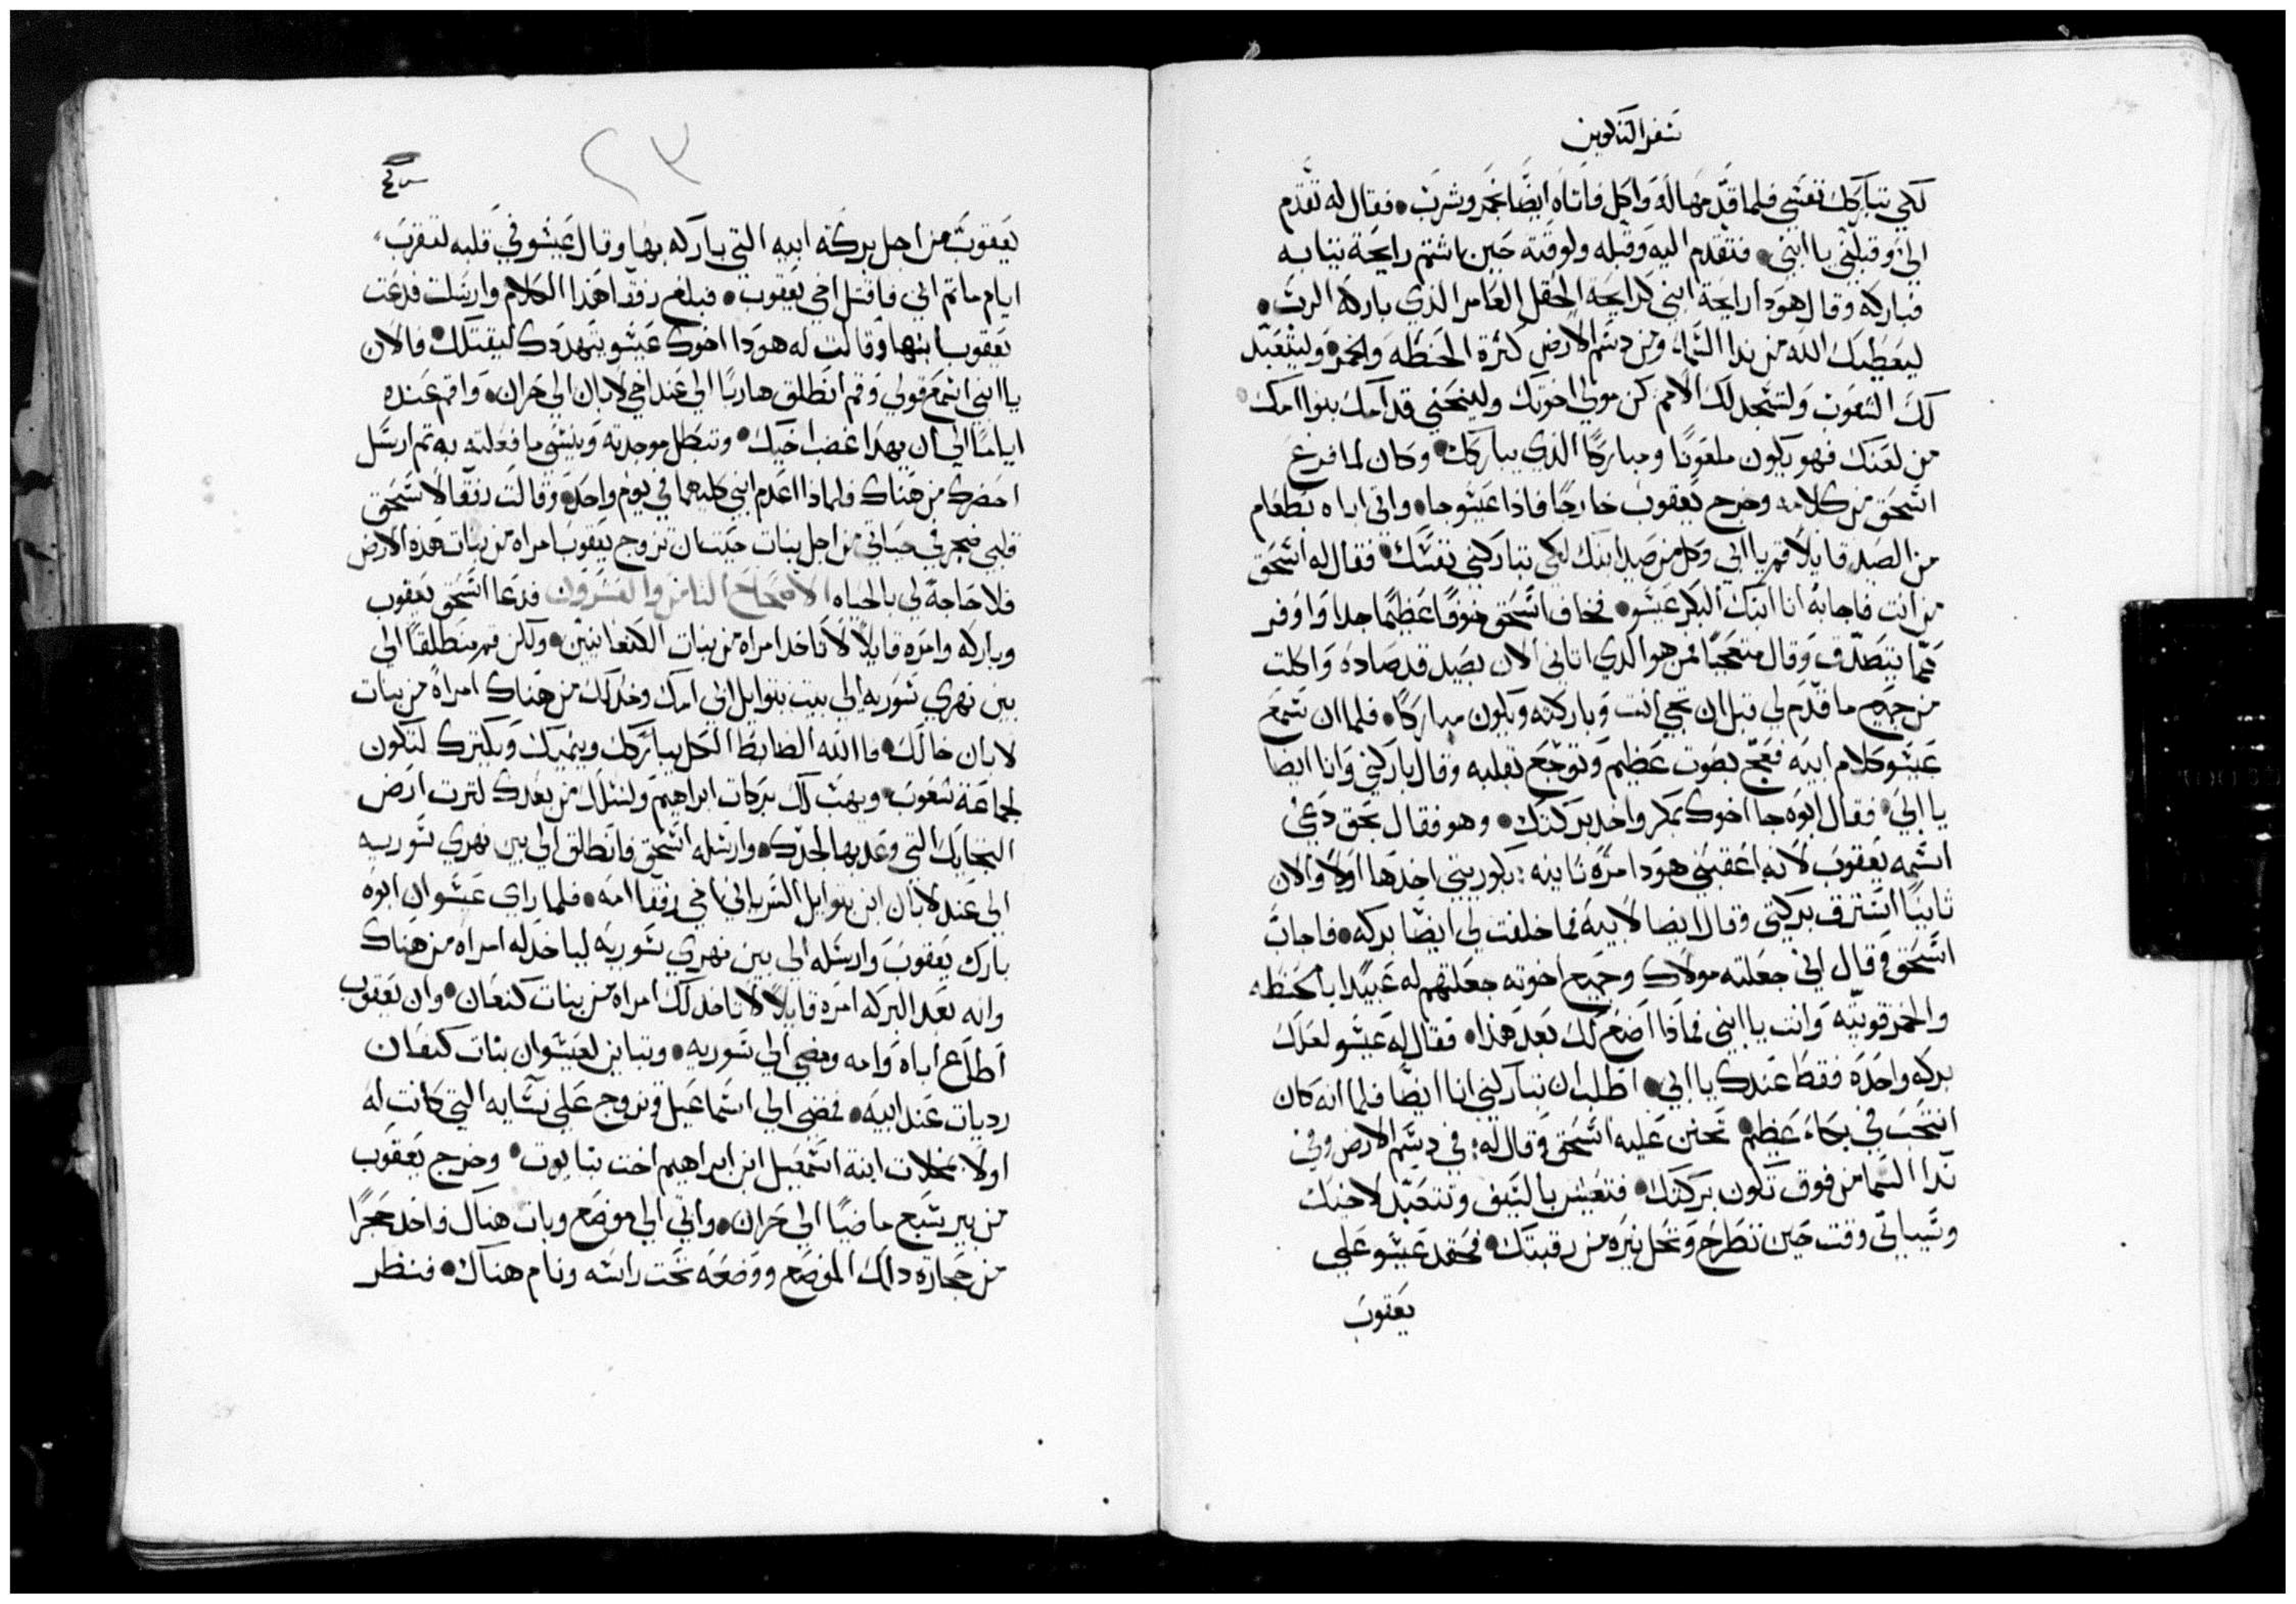 سفر التكوين
لكي تباركك نفسي فلما قدمها له واكل فاتاه ايضًا بخمر وشرب • فقال له تقدم
اليّ وقبلني يا ابني • فتقدم اليه وقبله ولوقته حين ما اشتم رايحة ثيابه
فباركه وقال هودا رايحة ابني كرايحة الحقل العامر الذي باركه الرب •
ليعطيك الله من ندا السماء ومن دسم الارض كثرة الحنطه والخمر • وليتعبّد
لك الشعوب ولتسجد لك الامم كن مولي اخوتك ولينحني قدامك بنوا امك •
من لعنك فهو يكون ملعونًا ومباركًا الذي يباركك • وكان لما فرغ
اسحق من كلامه وخرج يعقوب خارجًا فاذا عيسو جا • واتي اباه بطعام
من الصيد قايلًا قم يا ابي وكل من صيد ابنك لكي تباركني نفسك • فقال له اسحق
من انت فاجابه انا ابنك البكر عيسو • فخاف اسحق خوفًا عظيمًا جدا واوفر
مما يتصدق وقال متعجبًا فمن هو الذي اتاني الان بصيد قد صاده واكلت
من جميع ما قدم لي قبل ان تجي انت وباركته ويكون مباركًا • فلما ان سمع
عيسو كلام ابيه فعج بصوت عظيم وتوجع بقلبه وقال باركني وانا ايضا
يا ابي • فقال ابوه جا اخوك بمكر واخد بركتك • وهو فقال بحق دعي
اسمه يعقوب لانه اعقبني هودا مرة ثانيه : بكوريتي اخدها اولًا والان
ثانيًا استرق بركتي وقال ايضا لابيه فما خلفت لي ايضًا بركه • فاجاب
اسحق وقال اني جعلته مولاك وجميع اخوته جعلتهم له عبيدًا بالحنطه
والخمر قويته وانت يا ابني فماذا اصنع لك بعد هذا • فقال له عيسو لعلك
بركه واحده فقط عندك يا ابي • اطلب ان تباركني انا ايضًا فلما انه كان
انتحب في بكاء عظيم • تحنن عليه اسحق وقال له : في دسم الارض وفي
ندا السما من فوق تكون بركتك • فتعيش بالسيف وتتعبّد لاخيك
وسياتي وقت حين تطرح وتحل نيره من رقبتك • فحقد عيسو علي
يعقوب
٢٣
يعقوب من اجل بركة ابيه التي باركه بها وقال عيسو في قلبه لتقرب
ايام ماتم ابي فاقتل اخي يعقوب • فبلغ رفقا هذا الكلام وارسلت فدعت
يعقوب ابنها وقالت له هودا اخوك عيسو يتهددك ليقتلك • فالان
يا ابني اسمع قولي وقم انطلق هاربًا الي عند اخي لابان الي حران • واقم عنده
ايامًا الي ان يهدا غضب اخيك • وتبطل موجدته وينسي ما فعلته به ثم ارسل
احضرك من هناك فلماذا اعدم ابني كليهما في يوم واحد • وقالت رفقا لاسحق
قلبي ضجر في حياتي من اجل بنات حيت ان تزوج يعقوب امراه من بنات هذه الارض
فلا حاجة لي بالحياه الاصحاح الثامن والعشرون فدعا اسحق يعقوب
وباركه وامره قايلًا لا تاخد امراه من بنات الكنعانيين • ولكن قم منطلقًا الي
بين نهري سوريه الي بيت بتوايل ابي امك وخد لك من هناك امراة من بنات
لابان خالك • فاالله الضابط الكل يباركك وينميك ويكترك لتكون
لجماعة شعوب • ويهب لك بركات ابراهيم ولنسلك من بعدك لترت ارض
التي وعد بها لجدك • وارسله اسحق فانطلق الي بين نهري سوريه
الي عند لابان ابن بتوايل السرياني اخي رفقا امه • فلما راي عيسو ان ابوه
بارك يعقوب وارسله الي بين نهري سوريه لياخد له امراه من هناك
وانه بعد البركه امره قايلًا لا تاخد لك امراه من بنات كنعان • وان يعقوب
اطاع اباه وامه ومضي الي سوريه • وتباين لعيسو ان بنات كنعان
رديات عند ابيه • فمضي الي اسماعيل وتزوج علي نسايه التي كانت له
اولًا بمخلات ابنة اسمعيل ابن ابراهيم اخت نبايوت • وخرج يعقوب
من بير سبع ماضيًا الي حران • واتي الي موضع وبات هناك فاخد حجرًا
من حجارة ذلك الموضع ووضعه تحت راسه ونام هناك • فنظر